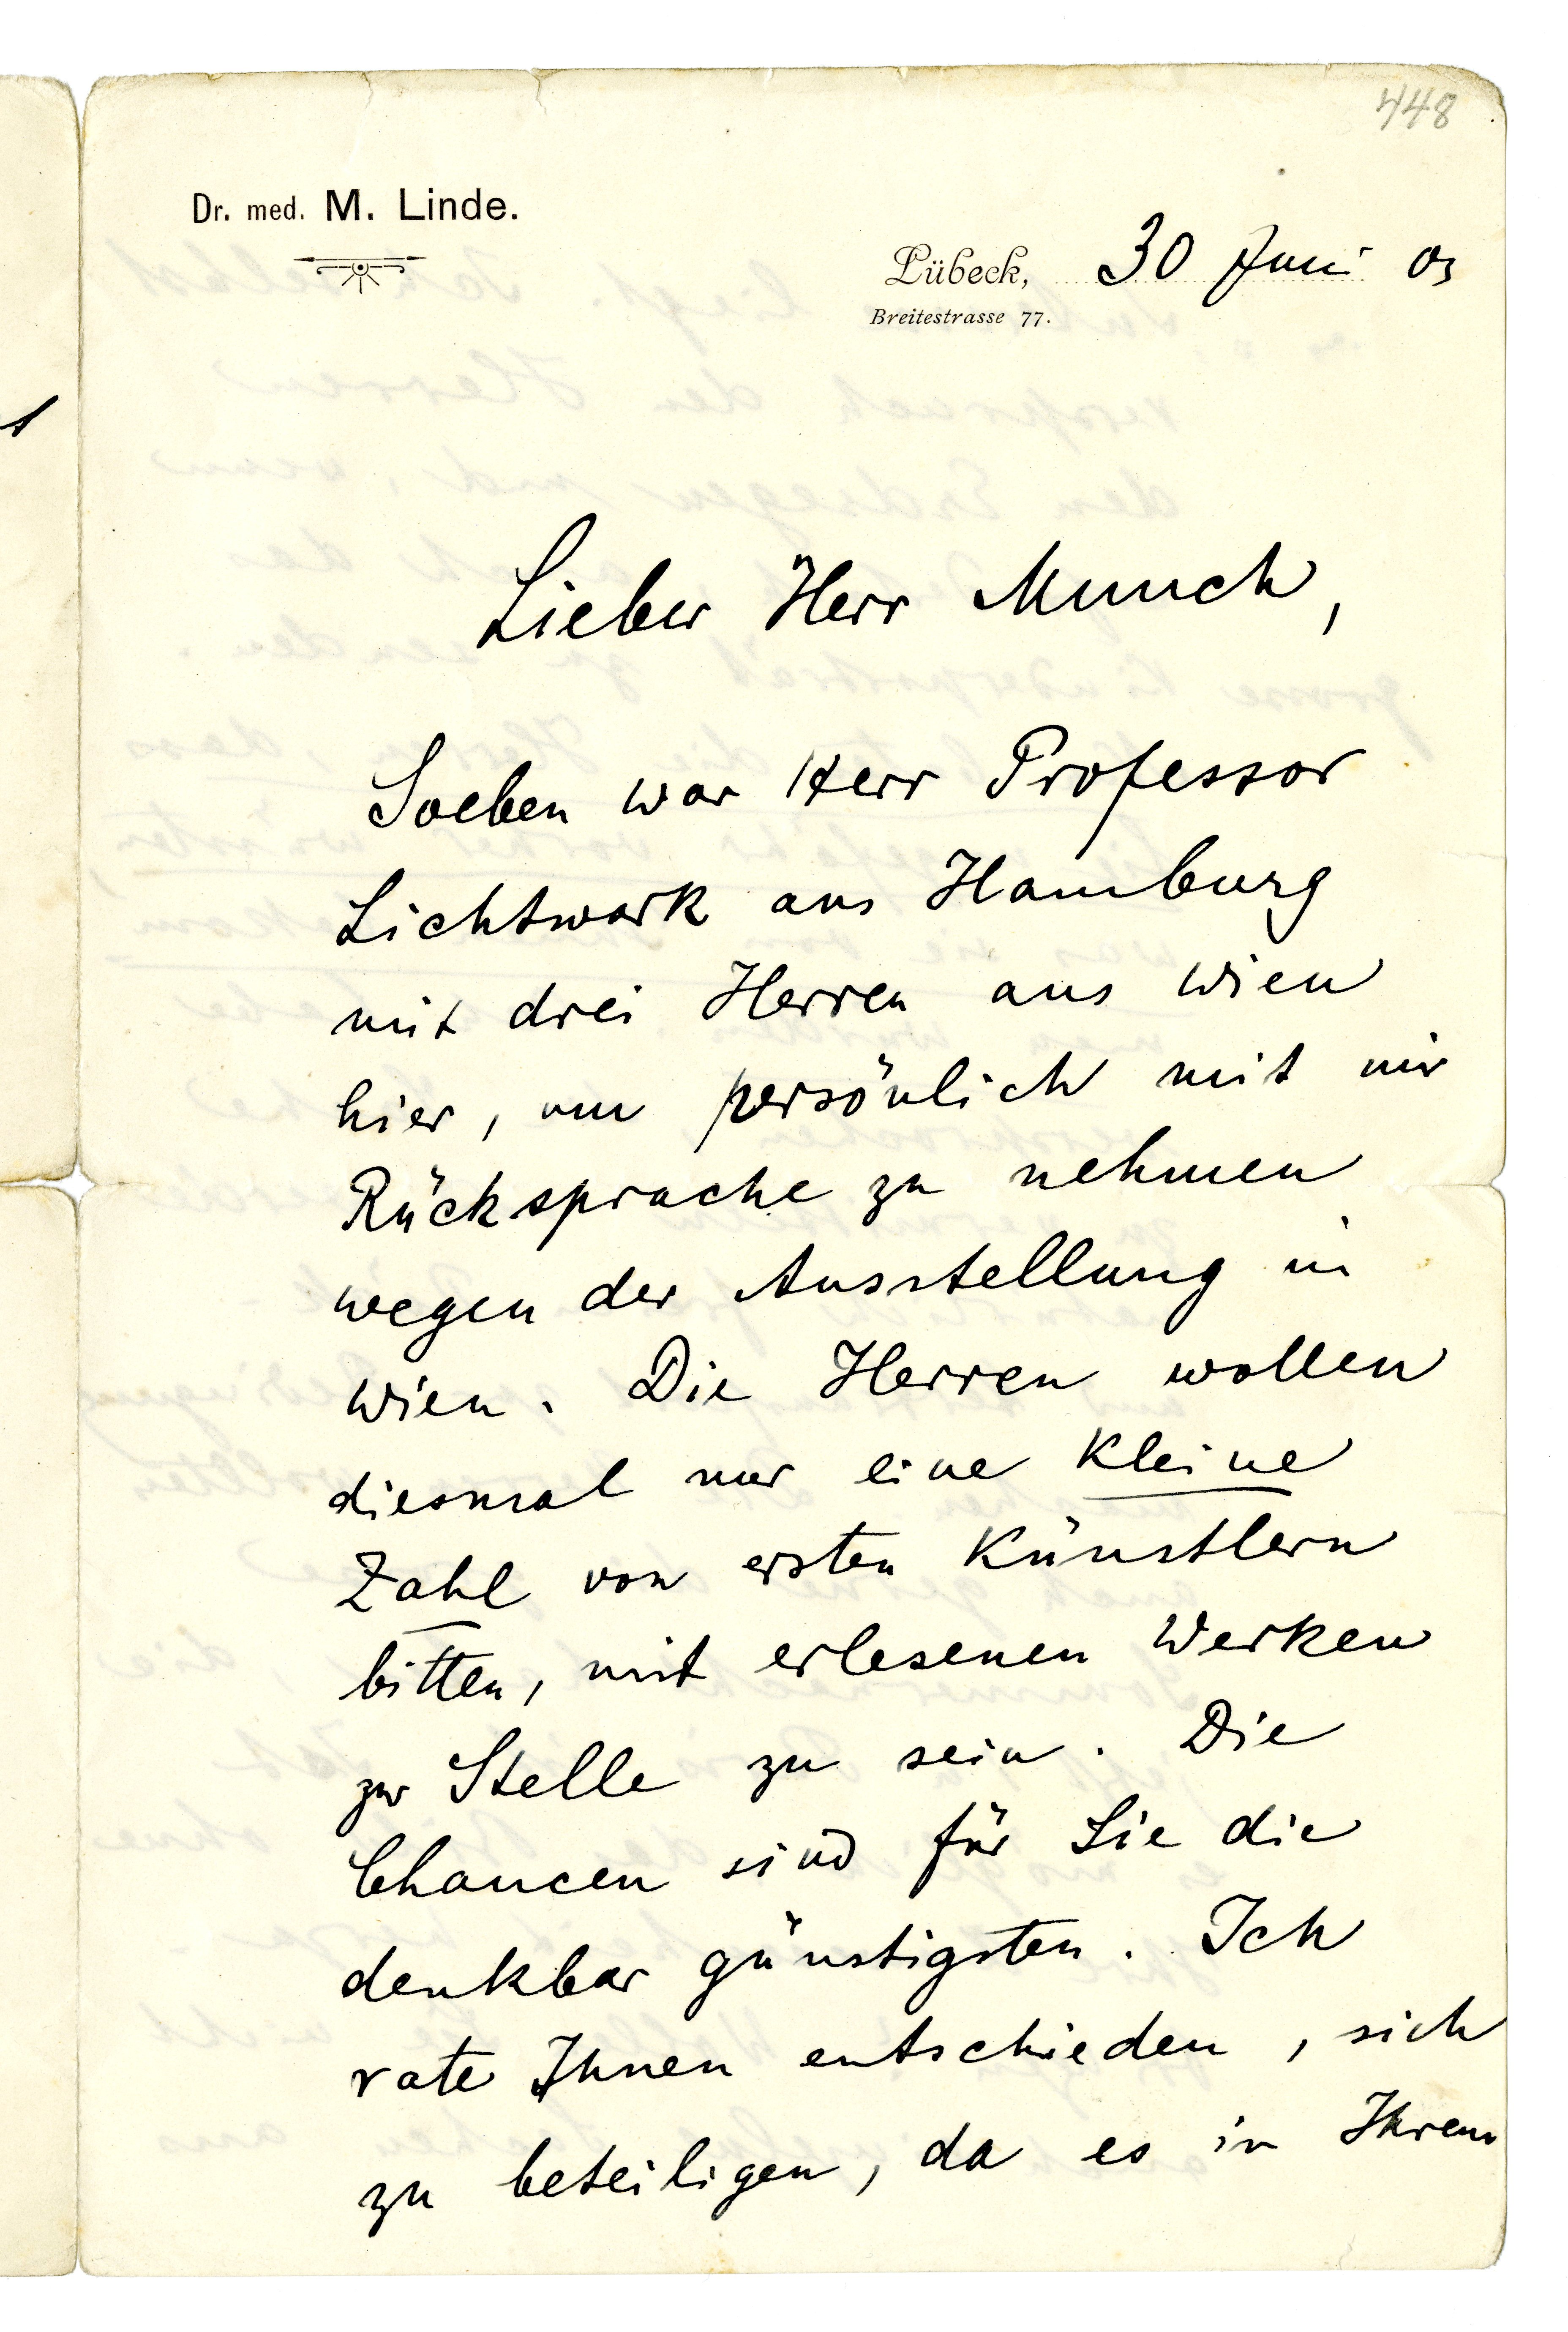 448
Dr. med. M. Linde.
Lübeck, 30 Juni 03
Breitestrasse 77.
Lieber Herr Munch,
Soeben war Herr Professor
Lichtwark aus Hamburg
mit drei Herren aus Wien
hier, um persönlich mit mir
Rücksprache zu nehmen
wegen der Ausstellung in
Wien. Die Herren wollen
diesmal nur eine kleine
Zahl von ersten Künstlern
bitten, mit erlesenen Werken
zur Stelle zu sein. Die
Chancen sind für Sie die
denkbar günstigsten. Ich
rate Ihnen entschieden, sich
zu beteiligen, da es in Ihrem